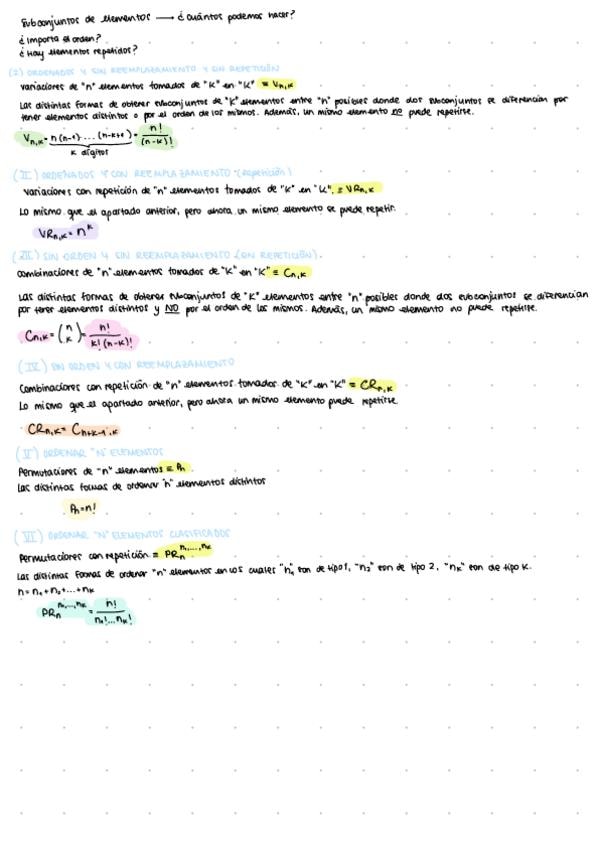 Subconjuntos de elementos → ¿Cuántos podemos hacer?
¿Importa el orden?
¿Hay elementos repetidos?
(I) ORDENADOS Y SIN REEMPLAZAMIENTO Y SIN REPETICIÓN
Variaciones de "n" elementos tomados de "K" en "K" ≡ Vn,k
Las distintas formas de obtener subconjuntos de "K" elementos entre "n" posibles donde dos subconjuntos se diferencian por
tener elementos distintos o por el orden de los mismos. Además, un mismo elemento no puede repetirse.
Vn,k = n(n-1)....(n-k+1) = n!/(n-k)!
k dígitos
(II) ORDENADOS Y CON REEMPLAZAMIENTO (repetición)
Variaciones con repetición de "n" elementos tomados de "K" en "K" ≡ VRn,k
Lo mismo que el apartado anterior, pero ahora un mismo elemento se puede repetir.
VRn,k = n^k
(III) SIN ORDEN Y SIN REEMPLAZAMIENTO (SIN REPETICIÓN).
Combinaciones de "n" elementos tomados de "K" en "K" ≡ Cn,k
Las distintas formas de obtener subconjuntos de "K" elementos entre "n" posibles donde dos subconjuntos se diferencian
por tener elementos distintos y NO por el orden de los mismos. Además, un mismo elemento no puede repetirse.
Cn,k = (n k) = n!/k!(n-k)!
(IV) SIN ORDEN Y CON REEMPLAZAMIENTO
Combinaciones con repetición de "n" elementos tomados de "K" en "K" ≡ CRn,k
Lo mismo que el apartado anterior, pero ahora un mismo elemento puede repetirse
CRn,k = Cn+k-1,k
(V) ORDENAR "N" ELEMENTOS
Permutaciones de "n" elementos ≡ Pn
Las distintas formas de ordenar "n" elementos distintos
Pn = n!
(VI) ORDENAR "N" ELEMENTOS CLASIFICADOS
Permutaciones con repetición ≡ PRn^n1,...,nk
Las distintas formas de ordenar "n" elementos en los cuales "n1" son de tipo 1, "n2" son de tipo 2, "nk" son de tipo K.
n = n1+n2+...+nk
PRn^n1,...,nk = n!/n1!...nk!